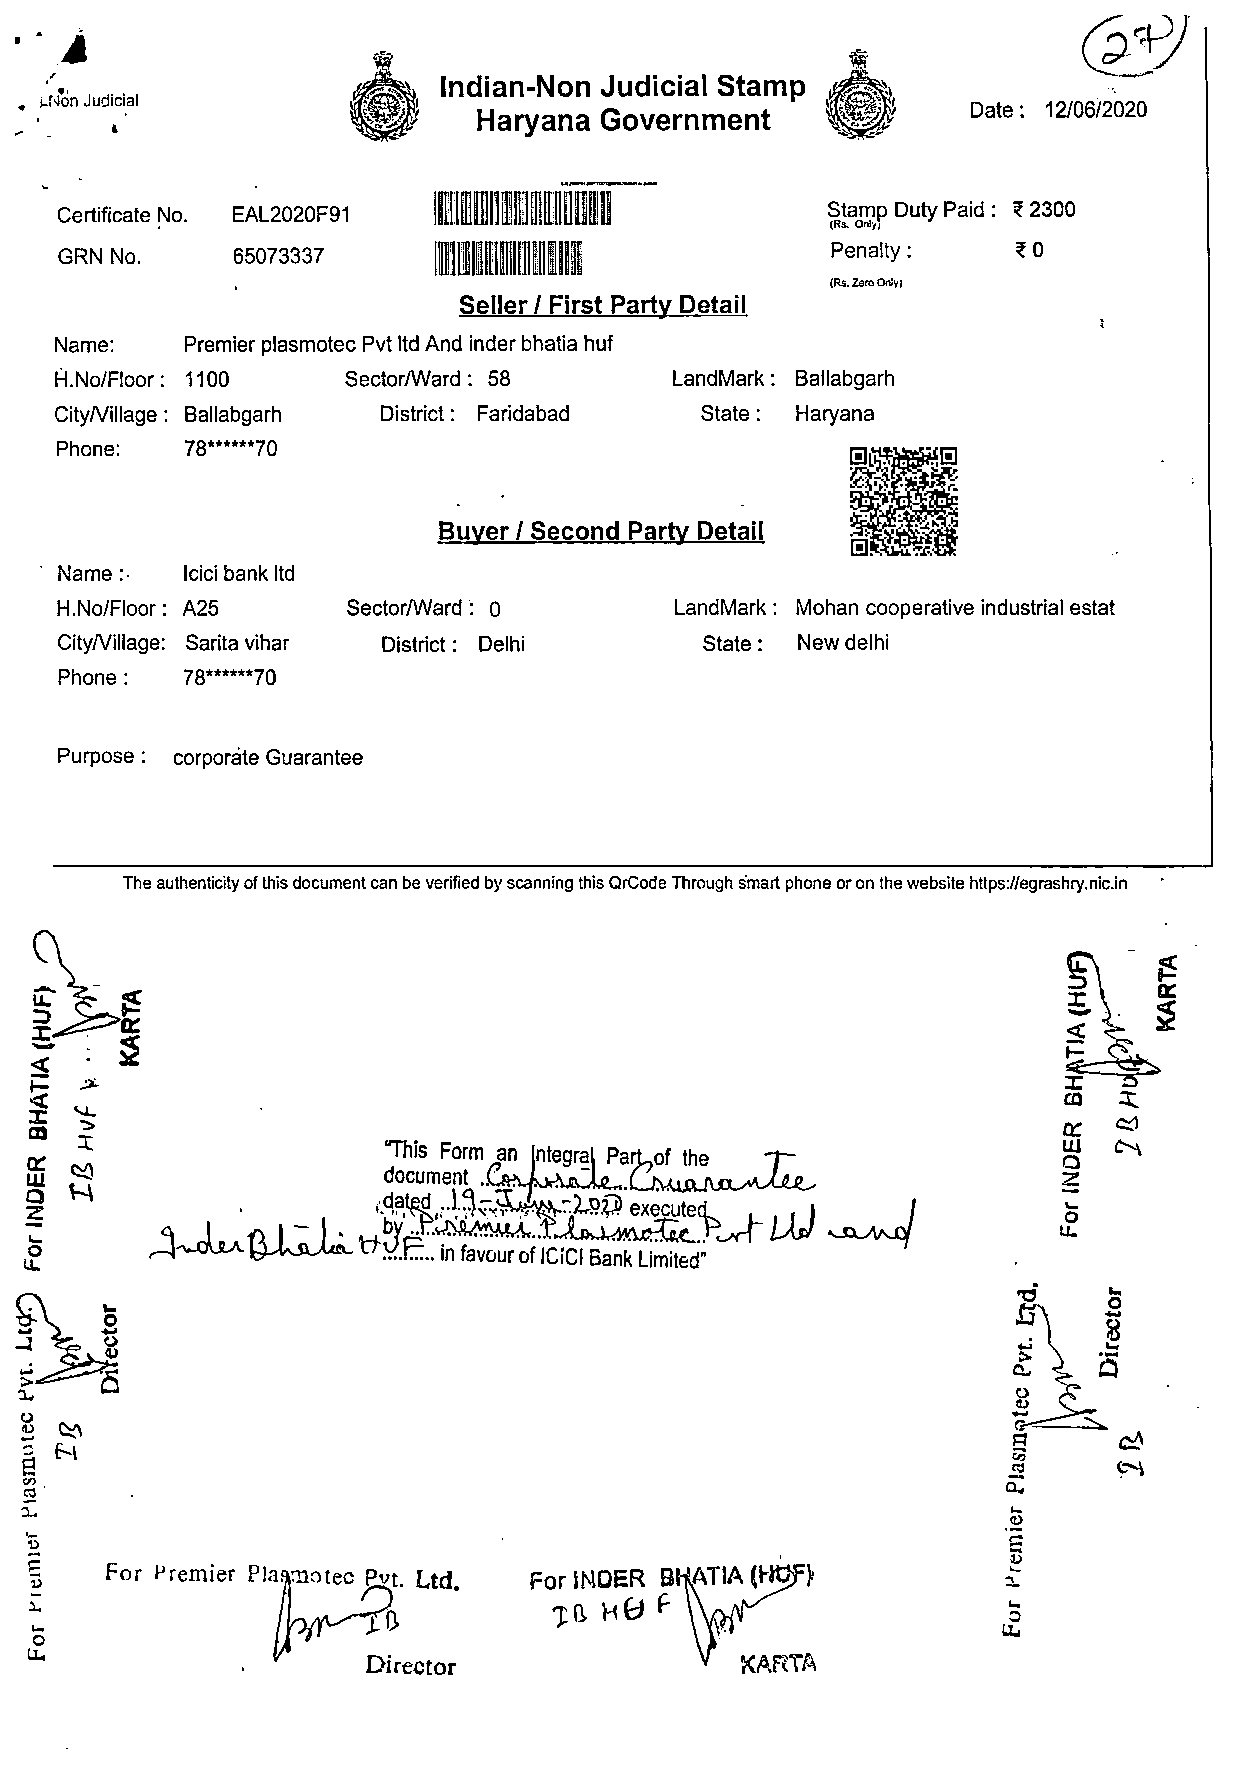 27
Non Judicial
Indian-Non Judicial Stamp
Haryana Government
Date : 12/06/2020
Certificate No. EAL2020F91
Stamp Duty Paid : ₹ 2300
(Rs. Only)
GRN No. 65073337
Penalty : ₹ 0
(Rs. Zero Only)
Seller / First Party Detail
Name: Premier plasmotec Pvt ltd And inder bhatia huf
H.No/Floor : 1100 Sector/Ward : 58 LandMark : Ballabgarh
City/Village : Ballabgarh District : Faridabad State : Haryana
Phone: 78******70
Buyer / Second Party Detail
Name : Icici bank ltd
H.No/Floor : A25 Sector/Ward : 0 LandMark : Mohan cooperative industrial estat
City/Village: Sarita vihar District : Delhi State : New delhi
Phone : 78******70
Purpose : corporate Guarantee
The authenticity of this document can be verified by scanning this QrCode Through smart phone or on the website https://egrashry.nic.in
For INDER BHATIA (HUF)
IB HUF
KARTA
For INDER BHATIA (HUF)
IB HUF
KARTA
"This Form an Integral Part of the
document Corporate Guarantee
dated 19-June-2020 executed
by Premier Plasmotec Pvt Ltd and
Inder Bhatia HUF in favour of ICICI Bank Limited"
For Premier Plasmotec Pvt. Ltd.
IB
Director
For Premier Plasmotec Pvt. Ltd.
IB
Director
For Premier Plasmotec Pvt. Ltd.
IB
Director
For INDER BHATIA (HUF)
IB HUF
KARTA